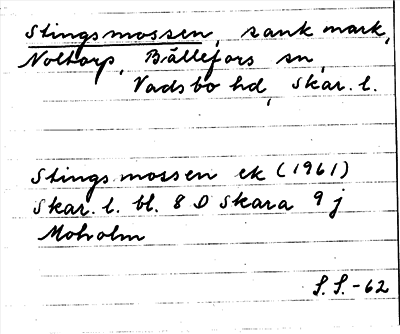 Stingsmossen, sank mark,
Noltorp, Bällefors sn,
Vadsbo hd, Skar. l.
Stingsmossen ek (1961)
Skar. l. bl. 8 D Skara 9 j
Moholm
S. S. -62